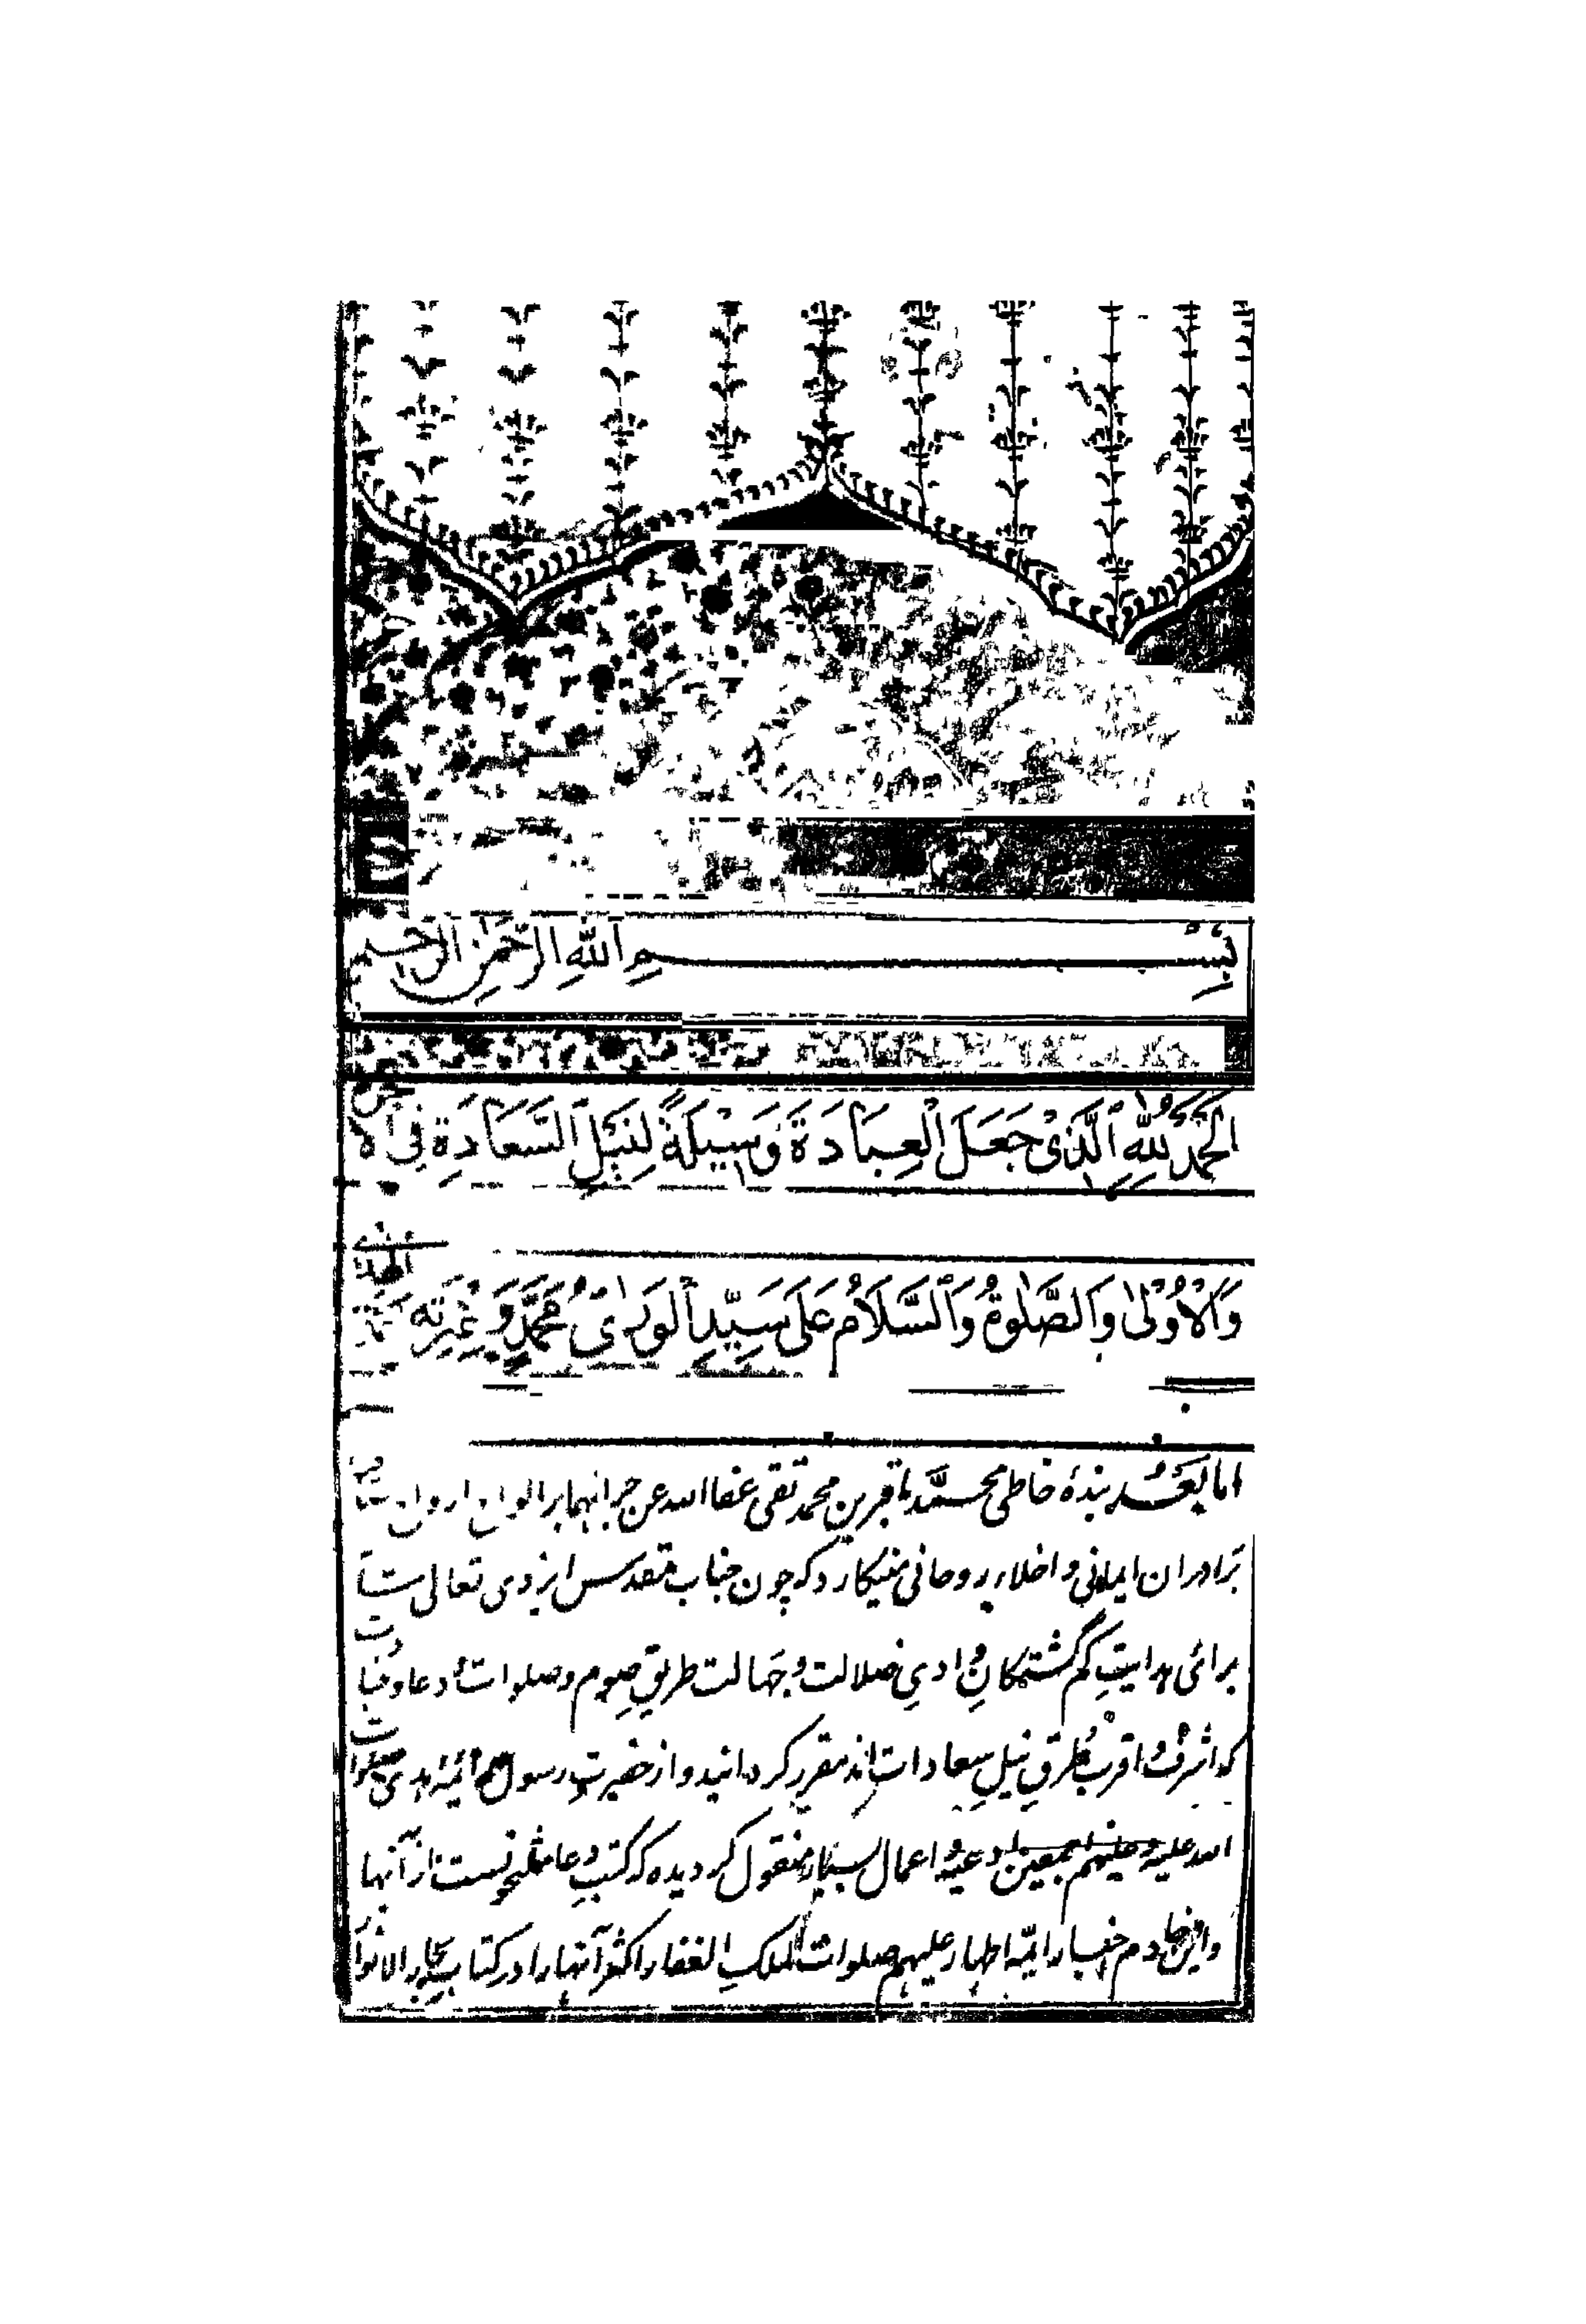 بِسْمِ اللهِ الرَّحْمٰنِ الرَّحِيمِ
اَلْحَمْدُ لِلّٰهِ الَّذِیْ جَعَلَ الْعِبَادَةَ وَسِيْلَةً لِنَيْلِ السَّعَادَةِ فِی الْاٰخرة
وَالْاُوْلٰی وَالصَّلٰوةُ وَالسَّلَامُ عَلٰی سَيِّدِ الْوَرٰی مُحَمَّدٍ وَ عِتْرَتِه
اما بَعْدُ بندۀ خاطی محمّد باقر بن محمد تقی عفا الله عن جرائمهما بر الواح ارواح
بَرادران ایمانی و اخلاء روحانی مینکارد که چون جناب مقدس ایزدی تعالی شانه
برائی هدایتِ کم گشتکانِ وادیِ ضلالت و جَهالت طریقِ صوم و صلوات و دعا و مناجات
که اشرفُ و اقربُ طُرقِ نیلِ سعادات اند مقرر کردانید و از حضرتِ رسول و ائمهٔ هدی صلوات
الله علیه و علیهم اجمعین ادعیه و اعمال بسیار منقول کردیده که کتبِ دعا مشحونست از آنها
و این خادم اخبار ائمّه اطهار علیهم صلوات الملک الغفار اکثر آنها را در کتاب بحار الانوار